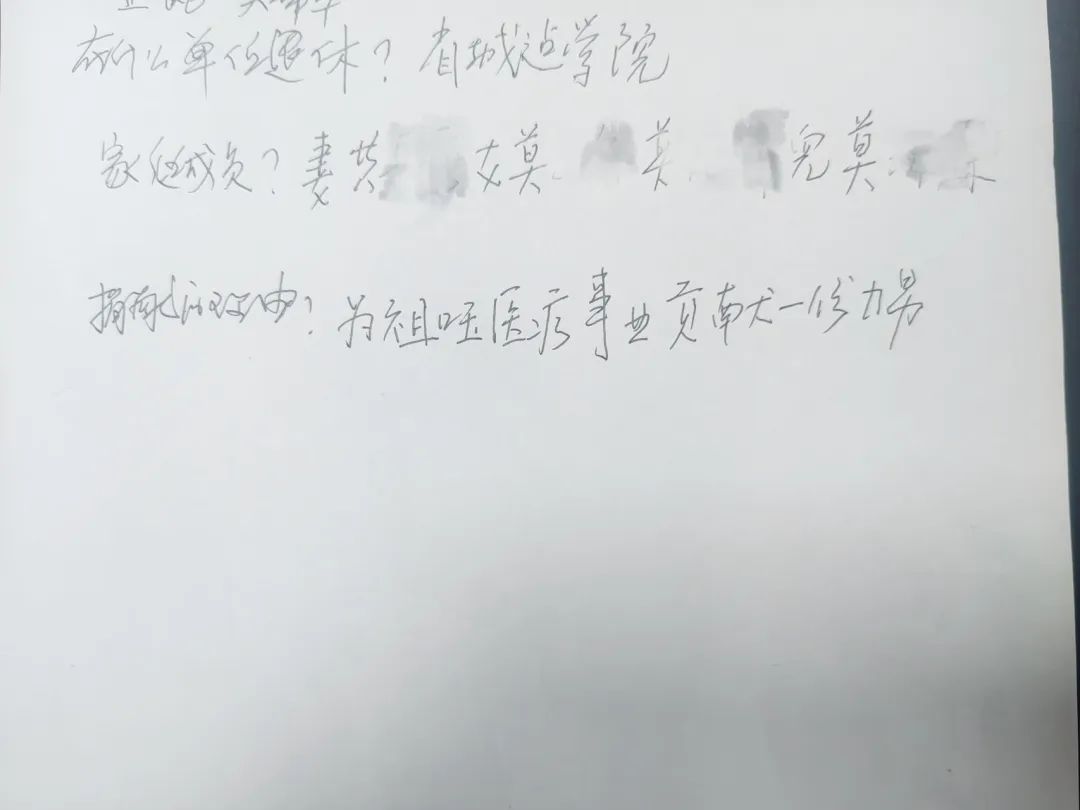 在什么单位退休？省城建学院
家庭成员？妻黄 女莫 莫 儿莫
捐献的理由？为祖国医疗事业贡献一份力量